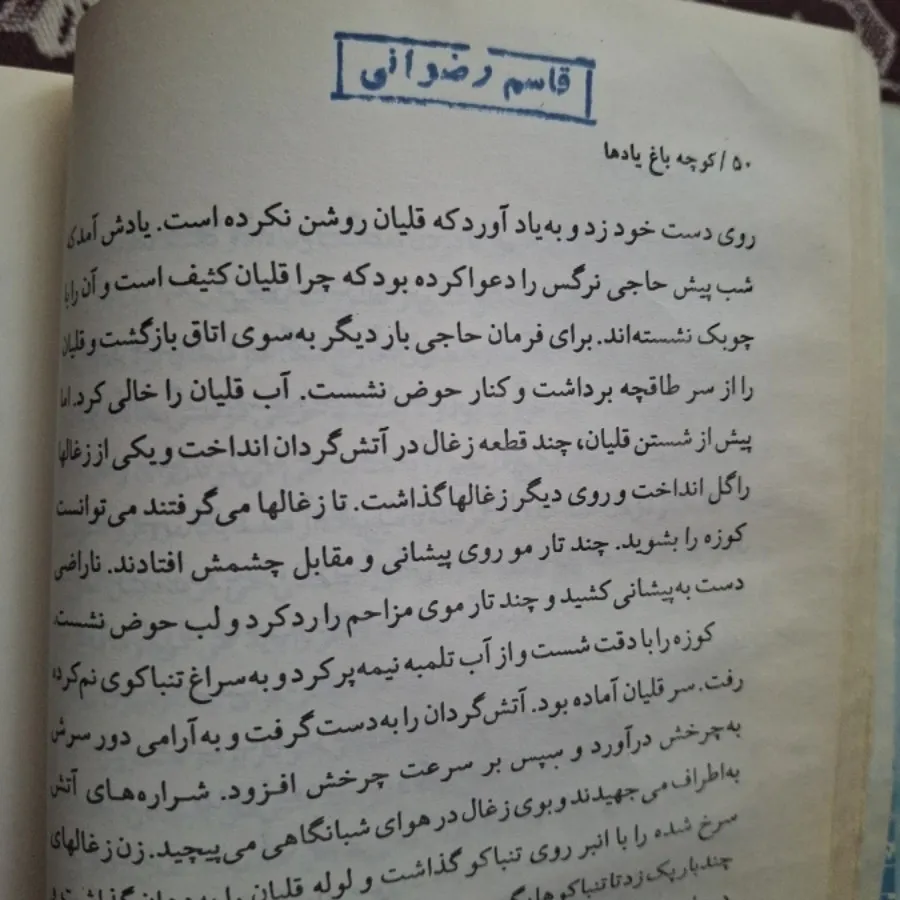 قاسم رضوانی
۵۰ / کوچه باغ یادها
روی دست خود زد و به‌یاد آورد که قلیان روشن نکرده است. یادش آمد
شب پیش حاجی نرگس را دعوا کرده بود که چرا قلیان کثیف است و آن را با
چوبک نشسته‌اند. برای فرمان حاجی بار دیگر به‌سوی اتاق بازگشت و قلیان
را از سر طاقچه برداشت و کنار حوض نشست. آب قلیان را خالی کرد. اما
پیش از شستن قلیان، چند قطعه زغال در آتش‌گردان انداخت و یکی از زغالها
را گل انداخت و روی دیگر زغالها گذاشت. تا زغالها می‌گرفتند می‌توانست
کوزه را بشوید. چند تار مو روی پیشانی و مقابل چشمش افتادند. ناراضی
دست به‌پیشانی کشید و چند تار موی مزاحم را رد کرد و لب حوض نشست.
کوزه را با دقت شست و از آب تلمبه نیمه‌پر کرد و به‌سراغ تنباکوی نم‌کرده
رفت. سر قلیان آماده بود. آتش‌گردان را به‌دست گرفت و به‌آرامی دور سرش
به‌چرخش درآورد و سپس بر سرعت چرخش افزود. شراره‌های آتش
به‌اطراف می‌جهیدند و بوی زغال در هوای شبانگاهی می‌پیچید. زن زغالهای
سرخ شده را با انبر روی تنباکو گذاشت و لوله قلیان را به
چند بار پک زد تا تنباکوها